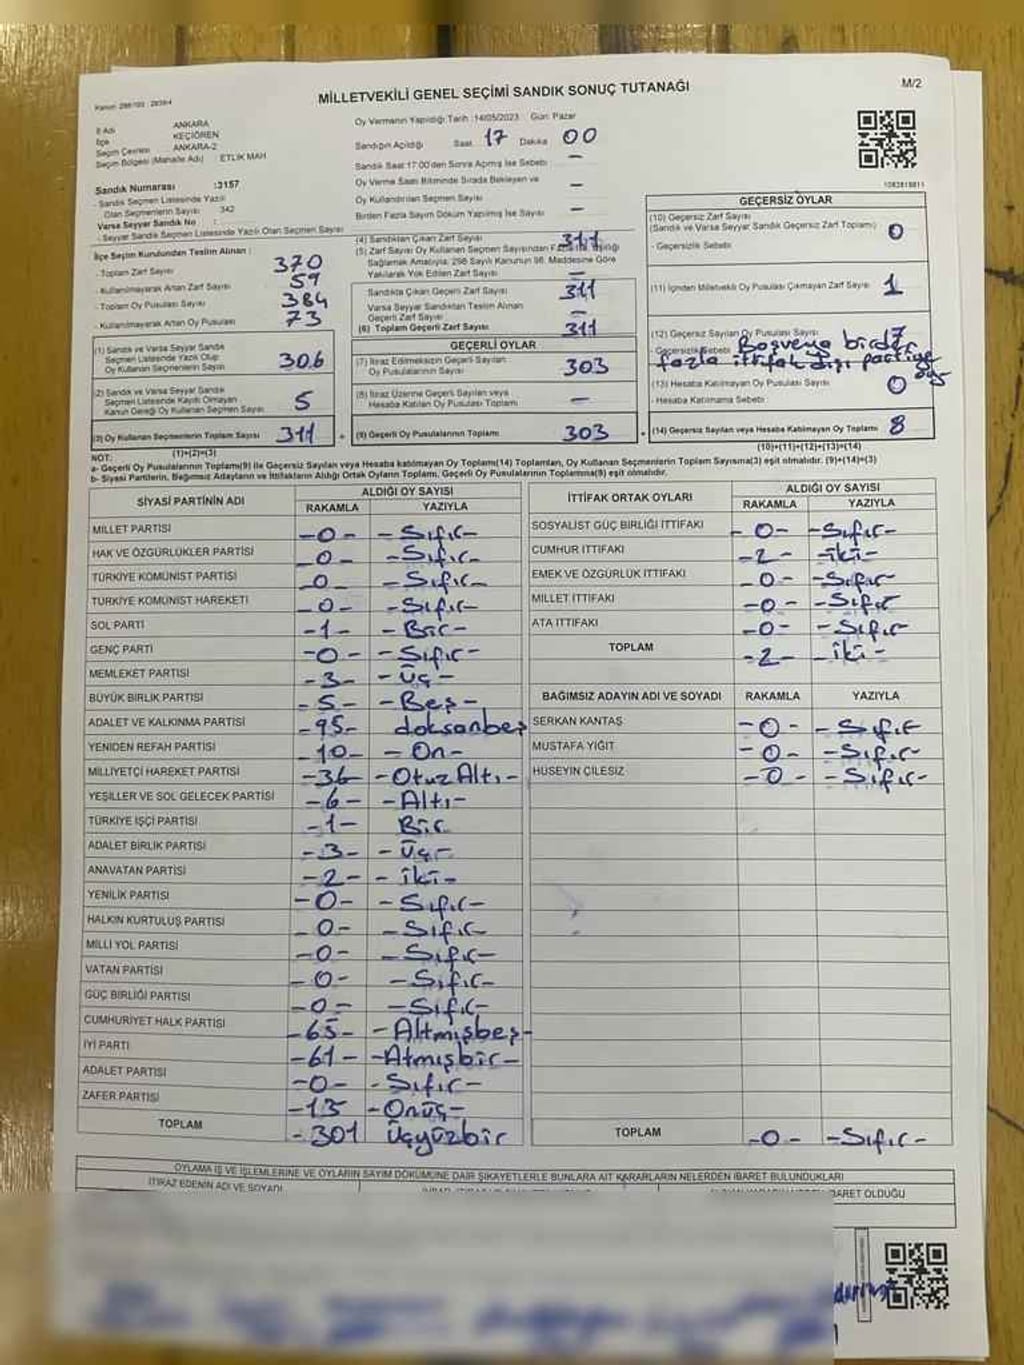 M/2
MİLLETVEKİLİ GENEL SEÇİMİ SANDIK SONUÇ TUTANAĞI
Kanun: 298/103 : 2839/4
İl Adı ANKARA
İlçe KEÇİÖREN
Seçim Çevresi ANKARA-2
Seçim Bölgesi (Mahalle Adı) ETLİK MAH
Sandık Numarası :3157
- Sandık Seçmen Listesinde Yazılı
Olan Seçmenlerin Sayısı 342
Varsa Seyyar Sandık No :
- Seyyar Sandık Seçmen Listesinde Yazılı Olan Seçmen Sayısı
Oy Vermenin Yapıldığı Tarih :14/05/2023 Gün: Pazar
Sandığın Açıldığı Saat 17 Dakika 00
Sandık Saat 17:00'den Sonra Açılmış İse Sebebi –
Oy Verme Saati Bitiminde Sırada Bekleyen ve
Oy Kullandırılan Seçmen Sayısı –
Birden Fazla Sayım Döküm Yapılmış İse Sayısı –
İlçe Seçim Kurulundan Teslim Alınan :
- Toplam Zarf Sayısı 370
- Kullanılmayarak Artan Zarf Sayısı 59
- Toplam Oy Pusulası Sayısı 384
- Kullanılmayarak Artan Oy Pusulası 73
(1) Sandık ve Varsa Seyyar Sandık
Seçmen Listesinde Yazılı Olup
Oy Kullanan Seçmenlerin Sayısı 306
(2) Sandık ve Varsa Seyyar Sandık
Seçmen Listesinde Kayıtlı Olmayan
Kanun Gereği Oy Kullanan Seçmen Sayısı 5
(3) Oy Kullanan Seçmenlerin Toplam Sayısı 311
(1)+(2)=(3)
(4) Sandıktan Çıkan Zarf Sayısı 311
(5) Zarf Sayısı Oy Kullanan Seçmen Sayısından Fazla
Sağlamak Amacıyla, 298 Sayılı Kanunun 98. Maddesine Göre
Yakılarak Yok Edilen Zarf Sayısı –
Sandıkta Çıkan Geçerli Zarf Sayısı 311
Varsa Seyyar Sandıktan Teslim Alınan
Geçerli Zarf Sayısı –
(6) Toplam Geçerli Zarf Sayısı 311
GEÇERLİ OYLAR
(7) İtiraz Edilmeksizin Geçerli Sayılan
Oy Pusulasının Sayısı 303
(8) İtiraz Üzerine Geçerli Sayılan veya
Hesaba Katılan Oy Pusulası Toplamı –
(9) Geçerli Oy Pusulalarının Toplamı 303
1082818811
GEÇERSİZ OYLAR
(10) Geçersiz Zarf Sayısı
(Sandık ve Varsa Seyyar Sandık Geçersiz Zarf Toplamı) 0
- Geçersizlik Sebebi
(11) İçinden Milletvekili Oy Pusulası Çıkmayan Zarf Sayısı 1
(12) Geçersiz Sayılan Oy Pusulası Sayısı 7
- Geçersizlik Sebebi Boş veya birden
fazla ittifak dışı partiye oy
(13) Hesaba Katılmayan Oy Pusulası Sayısı 0
- Hesaba Katılmama Sebebi
(14) Geçersiz Sayılan veya Hesaba Katılmayan Oy Toplamı 8
(10)+(11)+(12)+(13)=(14)
NOT:
a- Geçerli Oy Pusulalarının Toplamı(9) ile Geçersiz Sayılan veya Hesaba katılmayan Oy Toplamı(14) Toplamları, Oy Kullanan Seçmenlerin Toplam Sayısına(3) eşit olmalıdır. (9)+(14)=(3)
b- Siyasi Partilerin, Bağımsız Adayların ve İttifakların Aldığı Ortak Oyların Toplamı, Geçerli Oy Pusulalarının Toplamına(9) eşit olmalıdır.
SİYASİ PARTİNİN ADI ALDIĞI OY SAYISI
RAKAMLA YAZIYLA
MİLLET PARTİSİ -0- -Sıfır-
HAK VE ÖZGÜRLÜKLER PARTİSİ -0- -Sıfır-
TÜRKİYE KOMÜNİST PARTİSİ -0- -Sıfır-
TÜRKİYE KOMÜNİST HAREKETİ -0- -Sıfır-
SOL PARTİ -1- -Bir-
GENÇ PARTİ -0- -Sıfır-
MEMLEKET PARTİSİ -3- -Üç-
BÜYÜK BİRLİK PARTİSİ -5- -Beş-
ADALET VE KALKINMA PARTİSİ -95- doksanbeş
YENİDEN REFAH PARTİSİ -10- -On-
MİLLİYETÇİ HAREKET PARTİSİ -36- -Otuz Altı-
YEŞİLLER VE SOL GELECEK PARTİSİ -6- -Altı-
TÜRKİYE İŞÇİ PARTİSİ -1- Bir
ADALET BİRLİK PARTİSİ -3- -Üç-
ANAVATAN PARTİSİ -2- -iki-
YENİLİK PARTİSİ -0- -Sıfır-
HALKIN KURTULUŞ PARTİSİ -0- -Sıfır-
MİLLİ YOL PARTİSİ -0- -Sıfır-
VATAN PARTİSİ -0- -Sıfır-
GÜÇ BİRLİĞİ PARTİSİ -0- -Sıfır-
CUMHURİYET HALK PARTİSİ -65- -Altmışbeş-
İYİ PARTİ -61- -Atmışbir-
ADALET PARTİSİ -0- -Sıfır-
ZAFER PARTİSİ -13- -Onüç-
TOPLAM -301 Üçyüzbir
İTTİFAK ORTAK OYLARI ALDIĞI OY SAYISI
RAKAMLA YAZIYLA
SOSYALİST GÜÇ BİRLİĞİ İTTİFAKI -0- -Sıfır-
CUMHUR İTTİFAKI -2- -iki-
EMEK VE ÖZGÜRLÜK İTTİFAKI -0- -Sıfır-
MİLLET İTTİFAKI -0- -Sıfır
ATA İTTİFAKI -0- -Sıfır-
TOPLAM -2- -iki-
BAĞIMSIZ ADAYIN ADI VE SOYADI RAKAMLA YAZIYLA
SERKAN KANTAŞ -0- -Sıfır
MUSTAFA YİĞİT -0- -Sıfır-
HÜSEYİN ÇİLESİZ -0- -Sıfır-
TOPLAM -0- -Sıfır-
OYLAMA İŞ VE İŞLEMLERİNE VE OYLARIN SAYIM DÖKÜMÜNE DAİR ŞİKAYETLERLE BUNLARA AİT KARARLARIN NELERDEN İBARET BULUNDUKLARI
İTİRAZ EDENİN ADI VE SOYADI
İBARET OLDUĞU